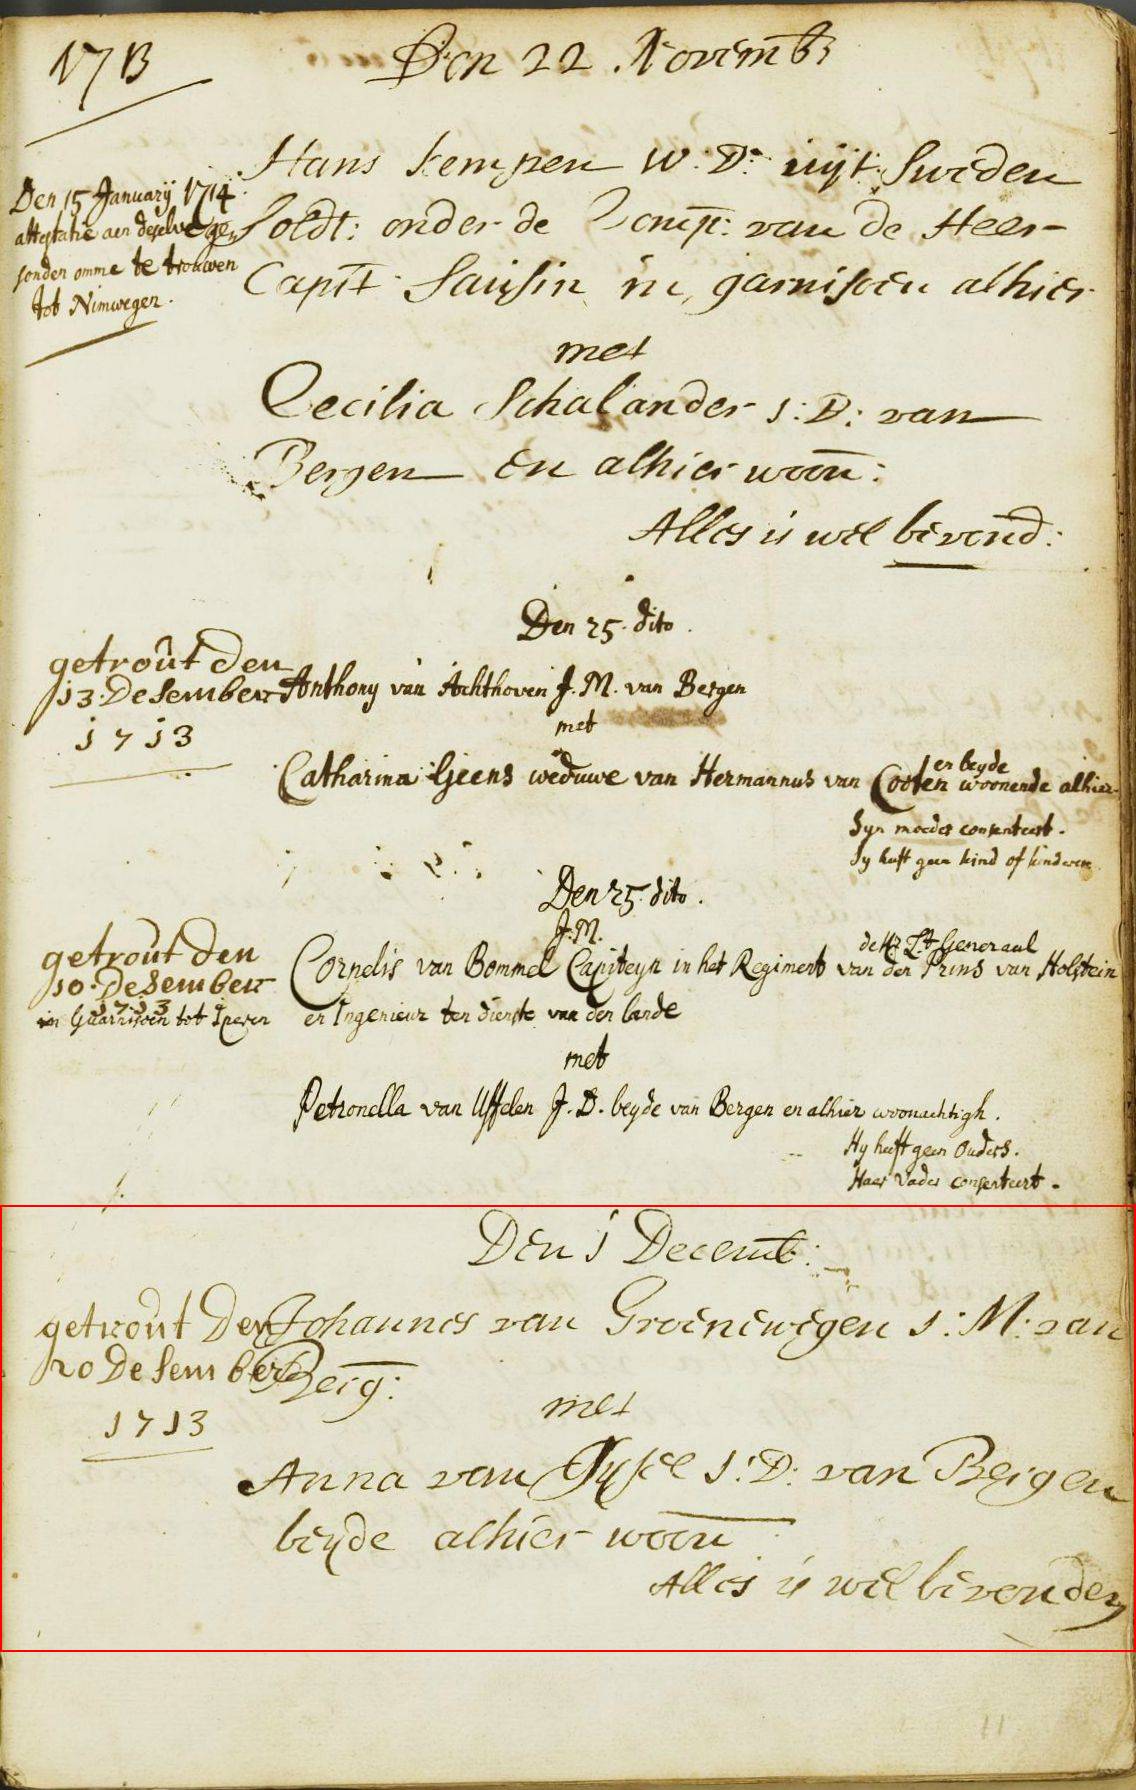 1713
Den 22 Novemb:
Den 15 Januarij 1714
attestatie aen deselve ge„
sonden omme te trouwen
tot Nimwegen.
Hans kempen W: D: uijt Sweden
Soldt: onder de Comp: van de Heer
Capit: Sausin in garnisoen alhier
met
Cecilia Schalander J: D: van
Bergen en alhier woon:
Alles is wel bevond:
Den 25 dito.
getrout den
13 Desember
1713
Anthony van Achthoven J. M. van Bergen
met
Catharina Geens weduwe van Hermannus van Cooten en beyde woonende alhier
Syn moeder consenteert.
Sy heeft geen kind of kinderen
Den 25 dito.
getrout den
10 Desember
1713
in Guarnisoen tot Iperen
J. M.
Cornelis van Bommel Capiteyn in het Regiment van de Hr Lt Generaal den Prins van Holstein
en Ingenieur ten dienste van den lande
met
Petronella van Uffelen J. D. beyde van Bergen en alhier woonachtigh.
Hy heeft geen Ouders.
Haer Vader consenteert.
Den 1 Decemb:
getrout Den
20 Desember
1713
Johannes van Groenewegen J: M: van
Berg:
met
Anna van Gijsel J: D: van Bergen
beijde alhier woon
Alles is wel bevonden